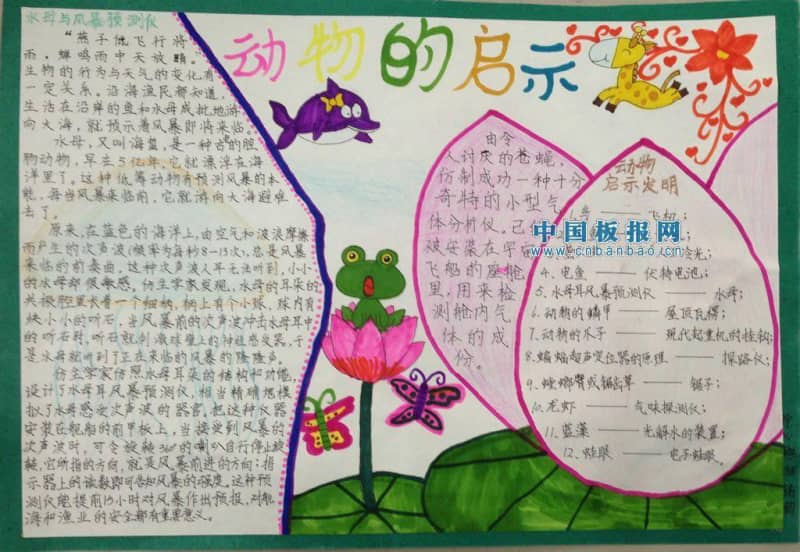 水母与风暴预测仪
"燕子低飞行将
雨,蝉鸣雨中天放晴。"
生物的行为与天气的变化有
一定关系。沿海渔民都知道,
生活在沿岸的鱼和水母成批地游
向大海,就预示着风暴即将来临。
水母,又叫海蜇,是一种古老的腔
肠动物,早在5亿年,它就漂浮在海
洋里了。这种低等动物有预测风暴的本
能,每当风暴来临前,它就游向大海避难
去了。
原来,在蓝色的海洋上,由空气和波浪摩擦
而产生的次声波(频率为每秒8—13次),总是风暴
来临的前奏曲。这种次声波人耳无法听到,小小
的水母却很敏感。仿生学家发现,水母的耳朵的
共振腔里长着一个细柄,柄上有个小球,球内有
块小小的听石,当风暴前的次声波冲击水母耳中
的听石时,听石就刺激球壁上的神经感受器,于
是水母就听到了正在来临的风暴的隆隆声。
仿生学家仿照水母耳朵的结构和功能,
设计了水母耳风暴预测仪,相当精确地模
拟了水母感受次声波的器官。把这种仪器
安装在舰船的前甲板上,当接受到风暴的
次声波时,可令旋转360°的喇叭自行停止旋
转,它所指的方向,就是风暴前进的方向;指
示器上的读数即可告知风暴的强度。这种预
测仪能提前15小时对风暴作出预报,对航
海和渔业的安全都有重要意义。
动物的启示
由令
人讨厌的苍蝇,
仿制成功一种十分
奇特的小型气
体分析仪。已
被安装在宇宙
飞船的座舱
里,用来检
测舱内气
体的成
份。
动物
启示发明
飞机;
冷光;
4、电鱼——伏特电池;
5、水母耳风暴预测仪——水母;
6、动物的鳞甲——屋顶瓦楞;
7、动物的爪子——现代起重机的挂钩;
8、蝙蝠超声定位器的原理——探路仪;
9、螳螂臂或锯齿草——锯子;
10、龙虾——气味探测仪;
11、蓝藻——光解水的装置;
12、蛙眼——电子蛙眼。
中国板报网
www.cnbanbao.cn